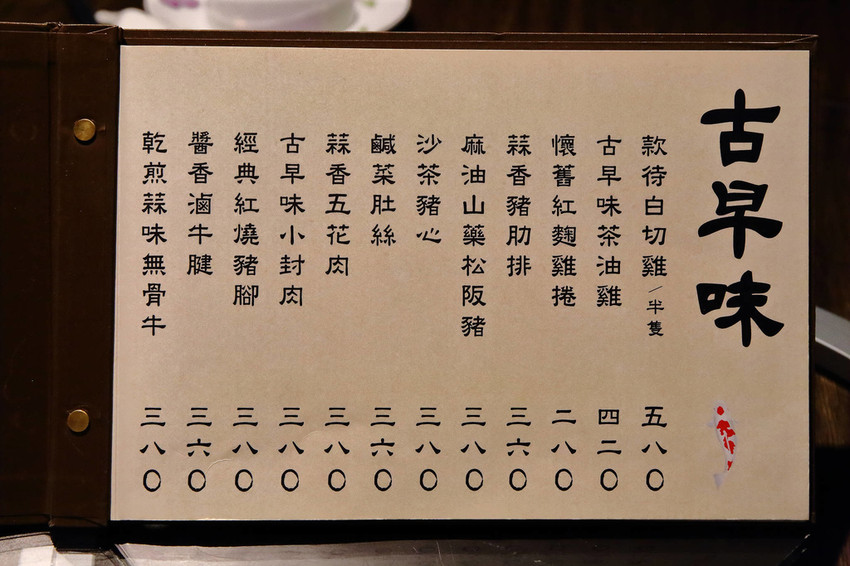 古早味
款待白切雞／半隻 五八〇
古早味茶油雞 四二〇
懷舊紅麴雞捲 二八〇
蒜香豬肋排 三六〇
麻油山藥松阪豬 三八〇
沙茶豬心 三八〇
鹹菜肚絲 三六〇
蒜香五花肉 三八〇
古早味小封肉 三八〇
經典紅燒豬腳 三八〇
醬香滷牛腱 三六〇
乾煎蒜味無骨牛 三八〇